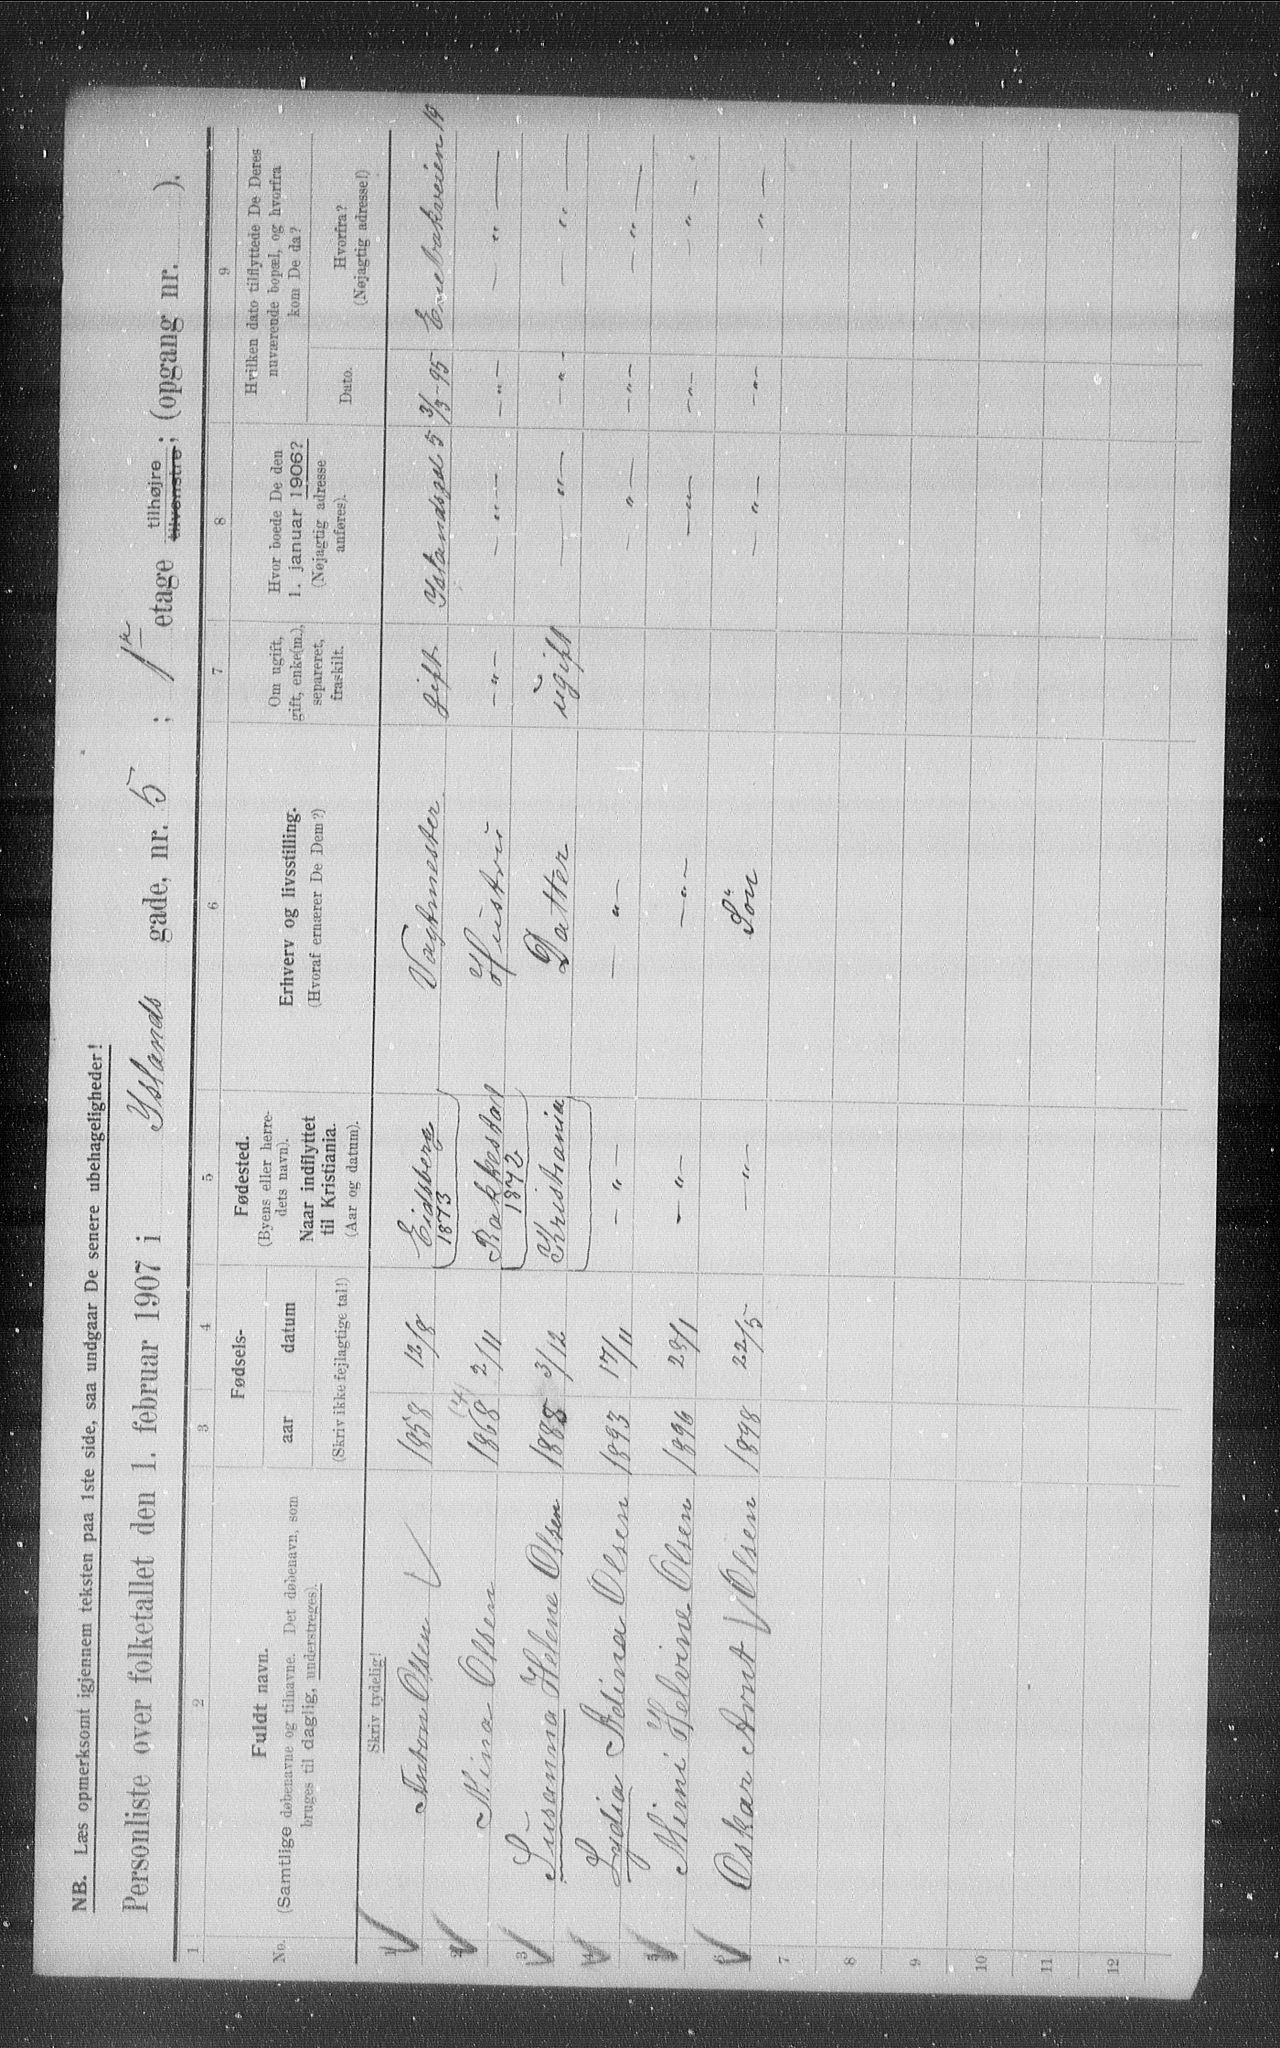 NB. Læs opmerksomt igjennem teksten paa 1ste side, saa undgaar De senere ubehageligheder!
Personliste over folketallet den 1. februar 1907 i Islands gade, nr. 5 ; 1ste etage tilhøjre tilvenstre; (opgang nr. ).
1 2 3 4 5 6 7 8 9
No.
Fuldt navn.
(Samtlige døbenavne og tilnavne. Det døbenavn, som
bruges til daglig, understreges).
Fødsels-
aar datum
(Skriv ikke fejlagtige tal!)
Fødested.
(Byens eller herre-
dets navn).
Naar indflyttet
til Kristiania.
(Aar og datum).
Erhverv og livsstilling.
(Hvoraf ernærer De Dem?)
Om ugift,
gift, enke(m.),
separeret,
fraskilt.
Hvor boede De den
1. januar 1906?
(Nøjagtig adresse
anføres).
Hvilken dato tilflyttede De Deres
nuværende bopæl, og hvorfra
kom De da?
Dato.
Hvorfra?
(Nøjagtig adresse!)
Skriv tydelig!
1 Anton Olsen 1858 12/8 Eidsberg 1873 Vagtmester gift Islandsgd 5 3/3-95 Enebakveien 19
2 Mina Olsen 1868 (4) 2/11 Rakkestad 1872 Hustru —"— —"— —"— —"—
3 Susanna Helene Olsen 1885 3/12 Kristiania Datter ugift —"— —"— —"—
4 Lydia Adina Olsen 1893 17/11 —"— —"— —"— —"— —"—
5 Mimi Helvine Olsen 1896 29/1 —"— —"— —"— —"— —"—
6 Oskar Arnt Olsen 1898 22/5 —"— Søn —"— —"— —"—
7
8
9
10
11
12